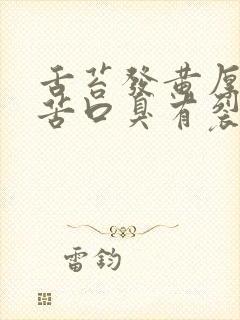 舌苔發黄厚
苦口臭有裂
雷鈞